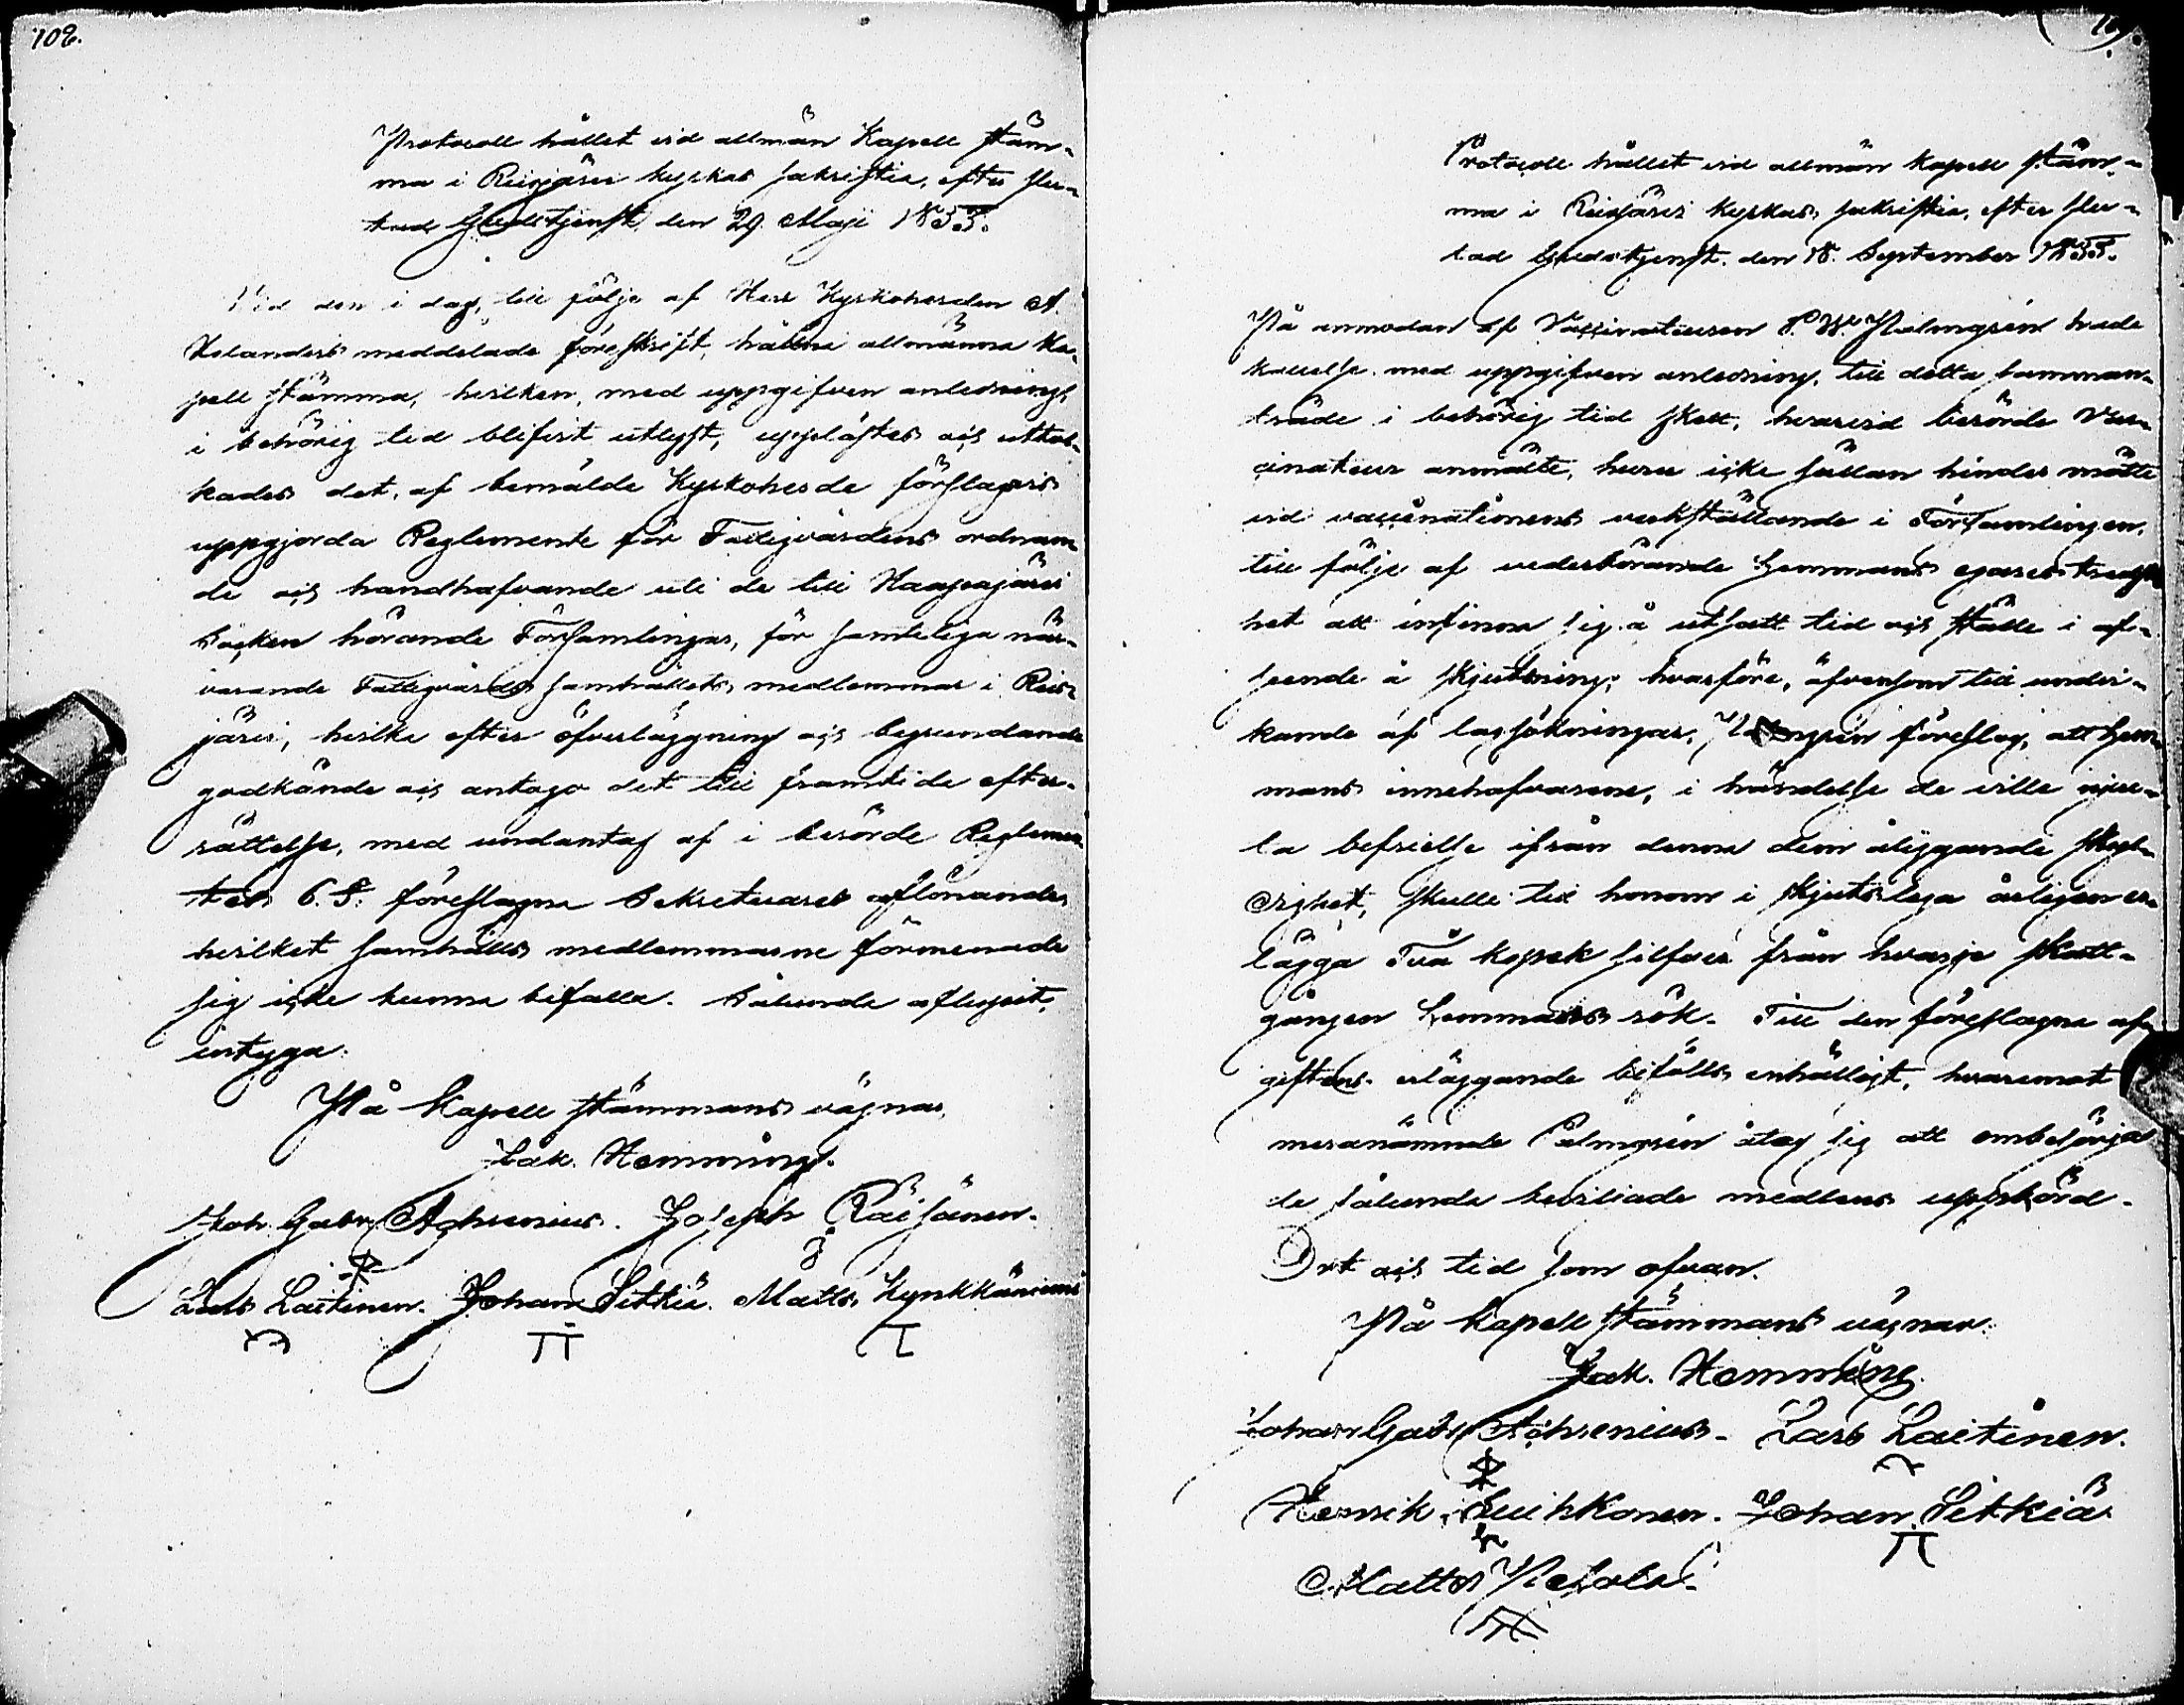 108.
Protocoll hållet vid allmän Kapell stäm-
ma i Reisjärvi kyrkas sakristia, efter slu-
tad Gudstjenst, den 29. Maji 1853.
Vid den i dag, till följe af Herr Kyrkoherden A.
Helanders meddelade föreskrift, hållne allmänna Ka-
pell stämma, hvilken, med uppgifven anledning,
i behörig tid blifvit utlyst, upplästes och uttol-
kades det, af bemälde Kyrkoherde förslagsvis
uppgjorda Reglemente för Fattigvårdens ordnan-
de och handhafvande uti de till Haapajärvi
Socken hörande Församlingar, för samtelige när-
varande Fattigvårds samhällets medlemmar i Reis-
järvi, hvilke efter öfverläggning och begrundande
godkände och antogo det till framtida efter-
rättelse, med undantag af i berörde Reglemen-
tes 6. §. föreslagne Sekreterares aflönande,
hvilket samhälls medlemmarne förmenade
sig icke kunna bifalla. Sålunda aflupit,
intyga.
På Kapell stämmans vägnar,
Jak. Hemming.
Joh. Gabr. Achrenius. Joseph Räisänen.
Lars Laitinen. Johan Sitkiä. Matts Kynkkäniemi
Protocoll hållet vid allmän Kapell stäm-
ma i Reisjärvi kyrkas sakristia, efter slu-
tad Gudstjenst, den 18. September 1853.
På anmodan af Vaccinateuren P. W. Palmgrén hade
kallelse med uppgifven anledning, till detta samman-
träde i behörig tid skett, hvarvid berörde Vac-
cinateur anmälte, huru icke sällan hinder mötte
vid vaccinationens verkställande i Församlingen,
till följe af vederbörande Hemmans egares tredsk-
het att infinna sig å utsatt tid och ställe i af-
seende å skjutsning; hvarföre, äfvensom till undvi-
kande af lagsökningar, Palmgrén föreslog, att hem-
mans innehafvarene, i händelse de ville njuta
befrielse ifrån denna dem åliggande skyl-
dighet, skulle till honom i skjutslega årligen er-
lägga Två kopek silfver från hvarje skatt-
gången Hemmans rök. Till den föreslagne af-
giftens erläggande biföllts enhälligt, hvaremot
meranämnde Palmgrén åtog sig att ombesörja
de sålunda beviljade medlens uppbörd.
Ort och tid som ofvan.
På Kapell stämmans vägnar:
Jak. Hemming.
Johan Gabr. Achrenius. Lars Laitinen.
Henrik Huihkonen. Johan Sitkiä
Matts